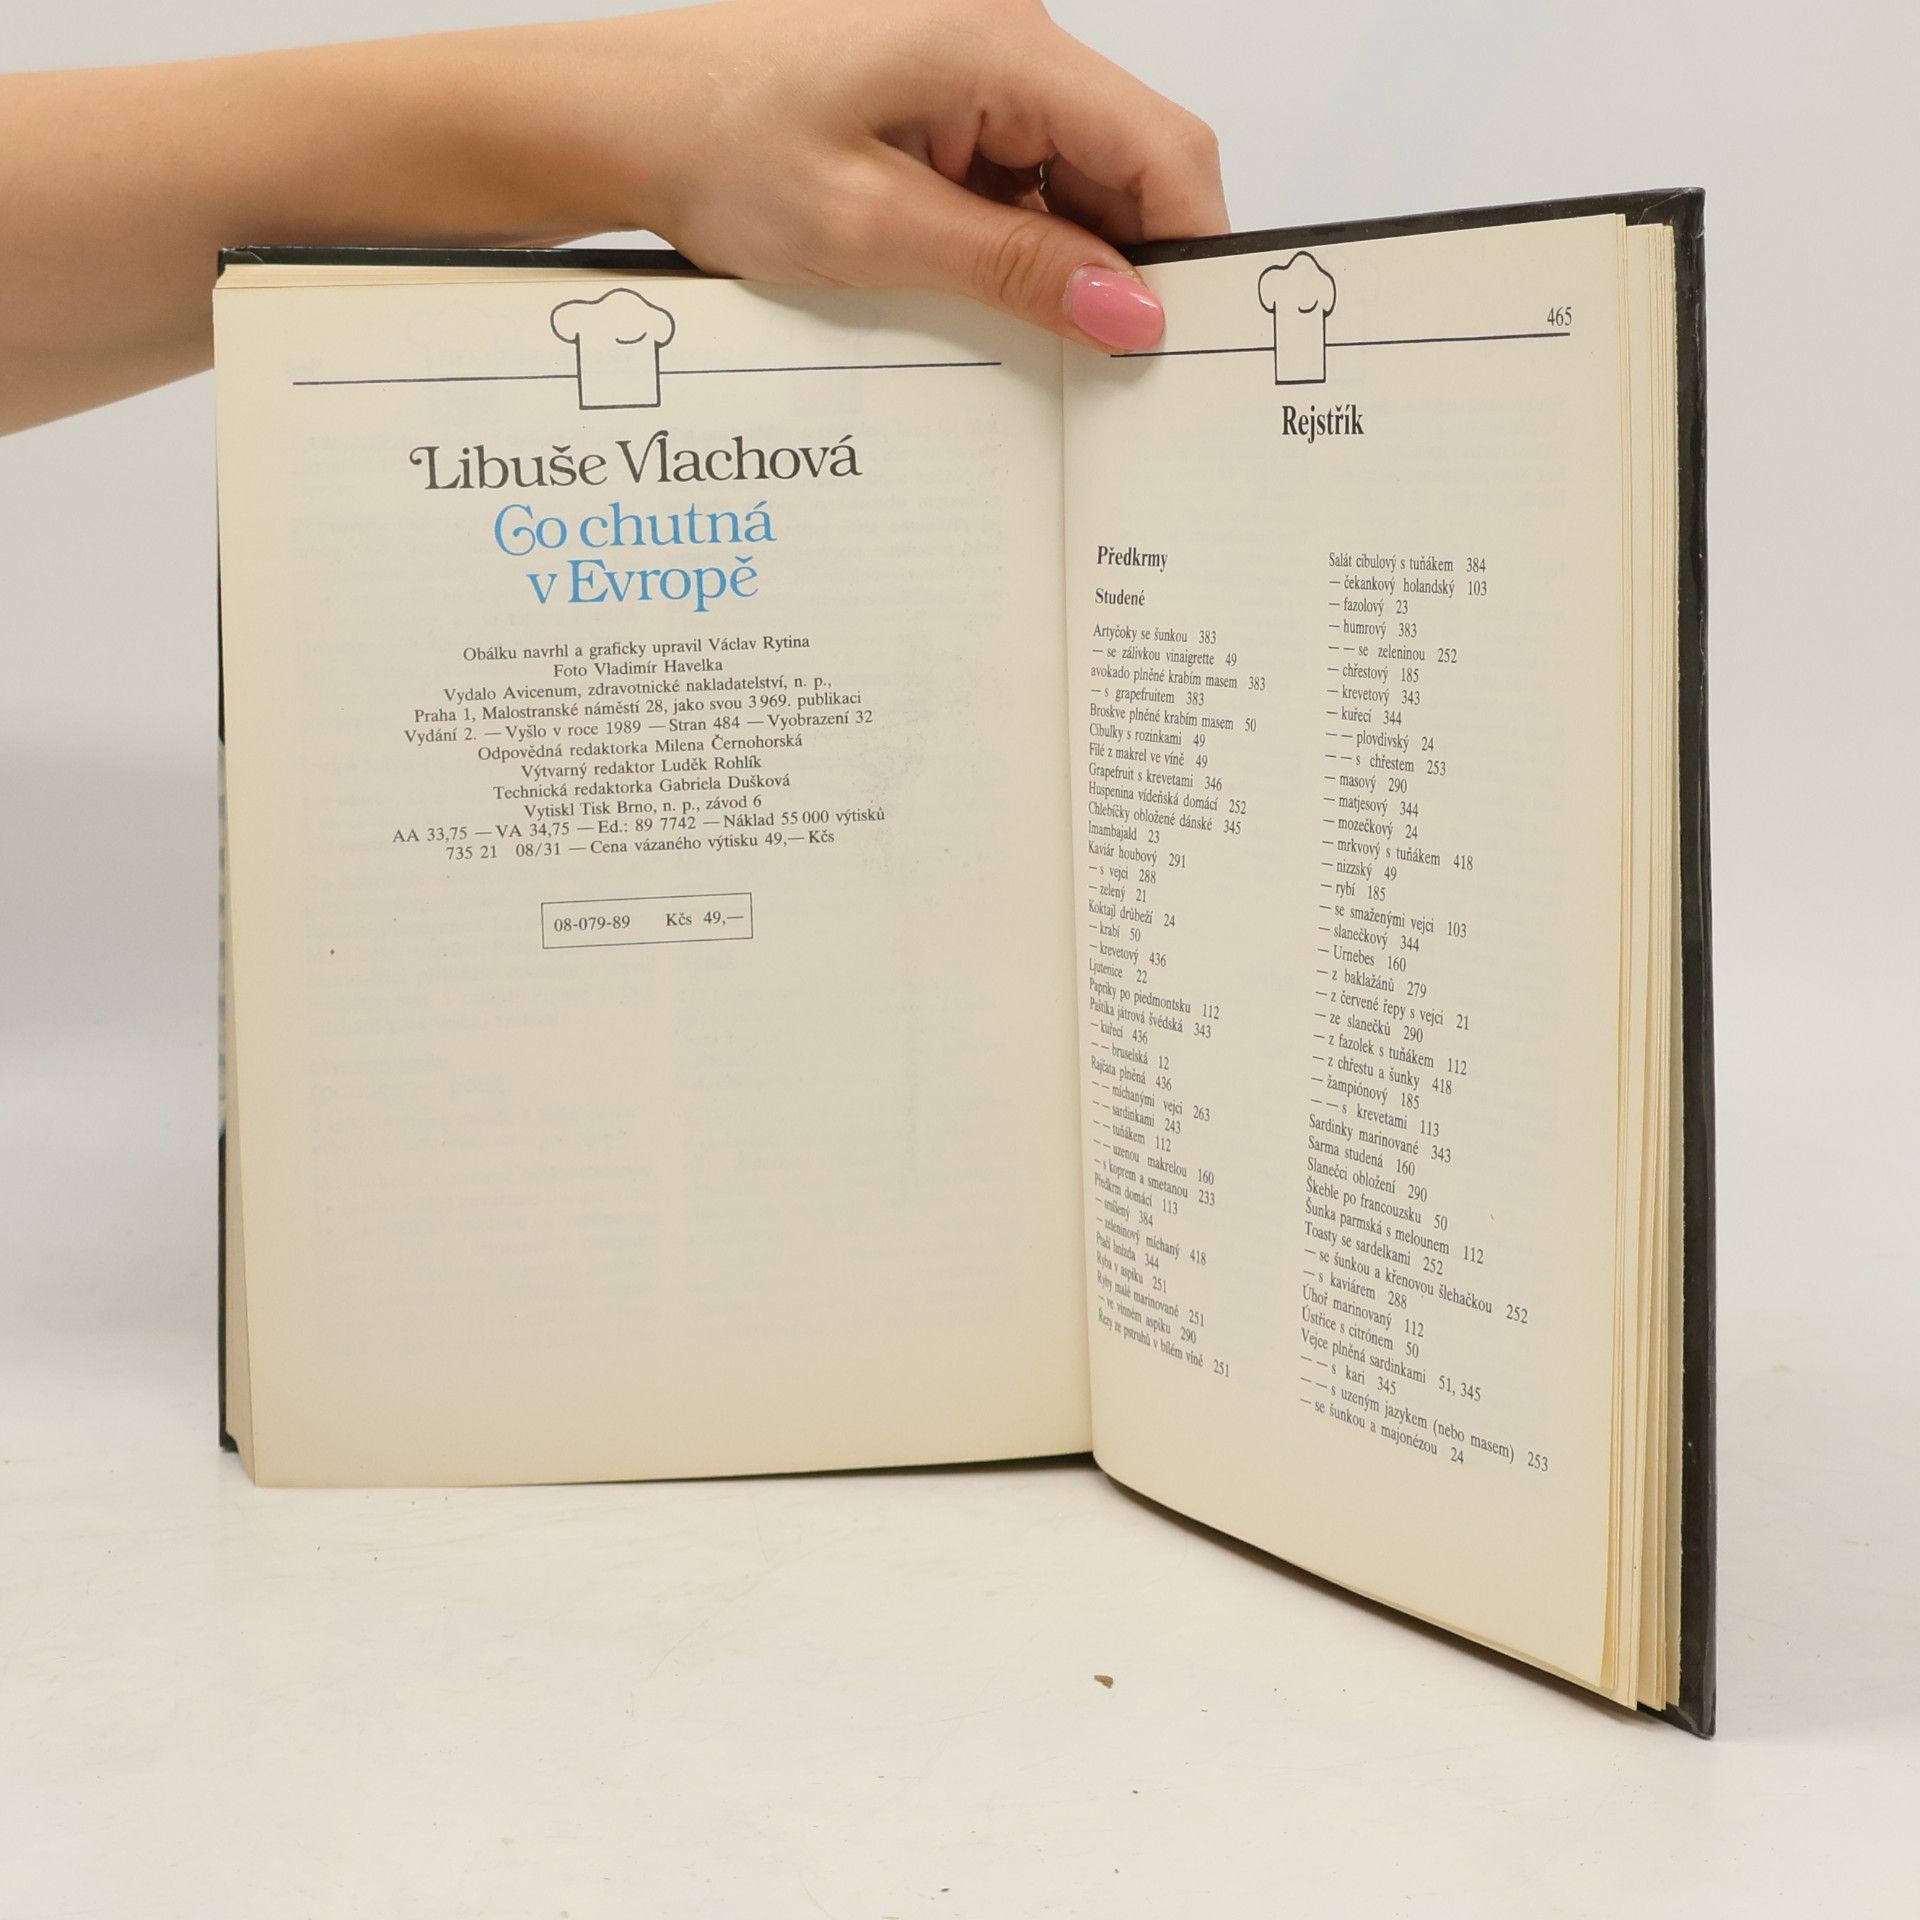 Libuše Vlachová
Co chutná
v Evropě
Obálku navrhl a graficky upravil Václav Rytina
Foto Vladimír Havelka
Vydalo Avicenum, zdravotnické nakladatelství, n. p.,
Praha 1, Malostranské náměstí 28, jako svou 3 969. publikaci
Vydání 2. — Vyšlo v roce 1989 — Stran 484 — Vyobrazení 32
Odpovědná redaktorka Milena Černohorská
Výtvarný redaktor Luděk Rohlík
Technická redaktorka Gabriela Dušková
Vytiskl Tisk Brno, n. p., závod 6
AA 33,75 — VA 34,75 — Ed.: 89 7742 — Náklad 55 000 výtisků
735 21 08/31 — Cena vázaného výtisku 49,— Kčs
08-079-89 Kčs 49,—
465
Rejstřík
Předkrmy
Studené
Artyčoky se šunkou 383
— se zálivkou vinaigrette 49
avokado plněné krabím masem 383
— s grapefruitem 383
Broskve plněné krabím masem 50
Cibulky s rozinkami 49
Filé z makrel ve víně 49
Grapefruit s krevetami 346
Huspenina vídeňská domácí 252
Chlebíčky obložené dánské 345
Imambajald 23
Kaviár houbový 291
— s vejci 288
— zelený 21
Koktajl drůbeží 24
— krabí 50
— krevetový 436
Ljutenice 22
Papriky po piedmontsku 112
Paštika játrová švédská 343
— kuřecí 436
— — bruselská 12
Rajčata plněná 436
— — míchanými vejci 263
— — sardinkami 243
— — tuňákem 112
— — uzenou makrelou 160
— s koprem a smetanou 233
Předkrm domácí 113
— smíšený 384
— zeleninový míchaný 418
Ptačí hnízda 344
Ryba v aspiku 251
Ryby malé marinované 251
— ve vinném aspiku 290
Řezy ze pstruhů v bílém víně 251
Salát cibulový s tuňákem 384
— čekankový holandský 103
— fazolový 23
— humrový 383
— — se zeleninou 252
— chřestový 185
— krevetový 343
— kuřecí 344
— — plovdivský 24
— — s chřestem 253
— masový 290
— matjesový 344
— mozečkový 24
— mrkvový s tuňákem 418
— nizzský 49
— rybí 185
— se smaženými vejci 103
— slanečkový 344
— Urnebes 160
— z baklažánů 279
— z červené řepy s vejci 21
— ze slanečků 290
— z fazolek s tuňákem 112
— z chřestu a šunky 418
— žampiónový 185
— — s krevetami 113
Sardinky marinované 343
Sarma studená 160
Slanečci obložení 290
Škeble po francouzsku 50
Šunka parmská s melounem 112
Toasty se sardelkami 252
— se šunkou a křenovou šlehačkou 252
— s kaviárem 288
Úhoř marinovaný 112
Ústřice s citrónem 50
Vejce plněná sardinkami 51, 345
— — s kari 345
— — s uzeným jazykem (nebo masem) 253
— se šunkou a majonézou 24